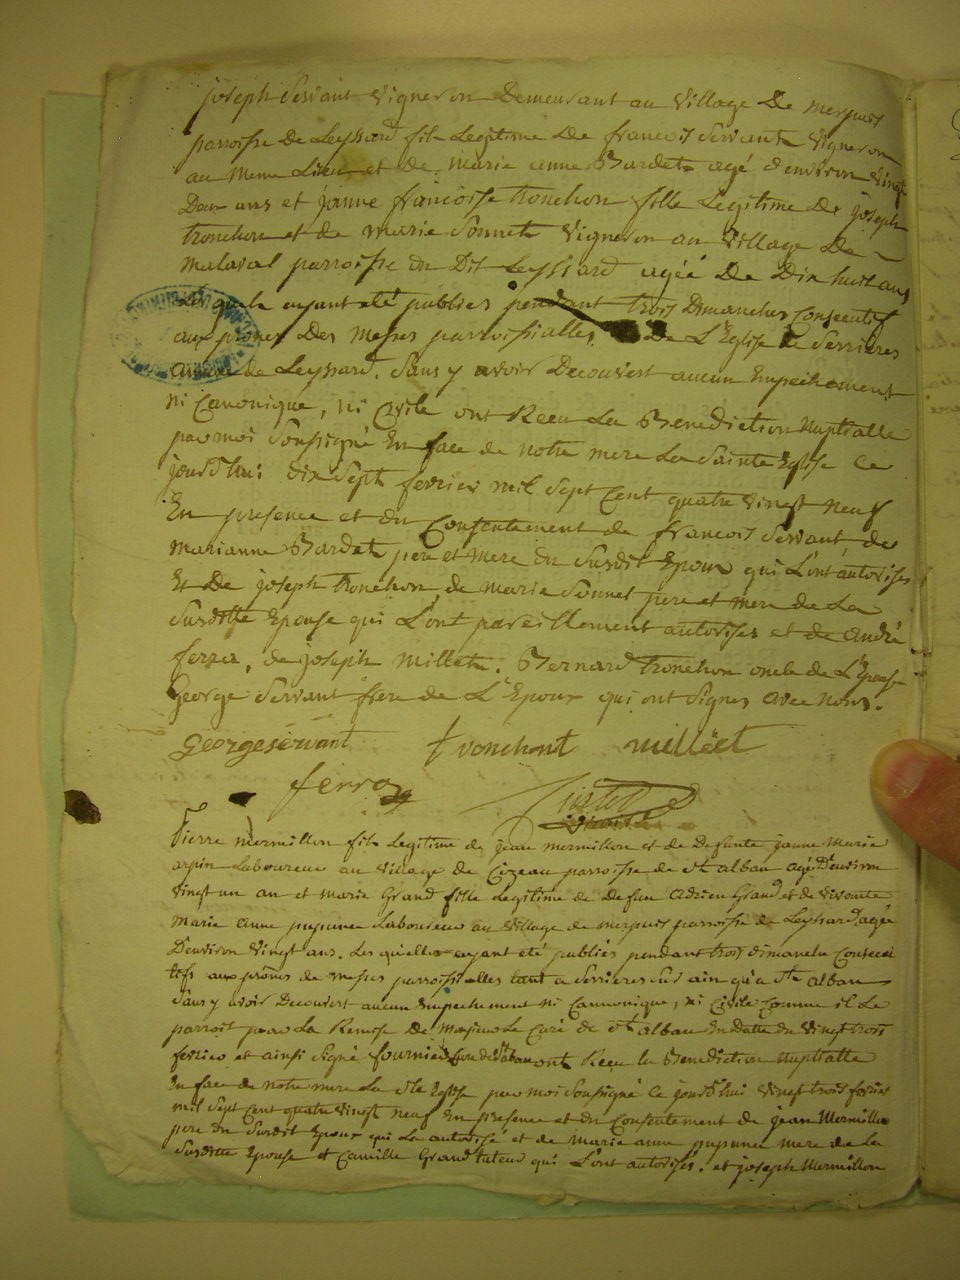 joseph Servant vigneron Demeurant au village De merpuis
parroisse de Leyssard fils Legitime De francois Servant vigneron
au meme Lieu et de marie anne Bardet agé d'environ vingt
Deux ans et jeanne francoise tronchon fille Legitime De joseph
tronchon et de marie Sonnet vigneron au village De
malaval parroisse du Dit Leyssard agéé De Dix huit ans
ayant eté publies pendant trois Dimanches Consecutifs
aux prones Des messes parroissialles De L'Eglise de Serrieres
de Leyssard. Sans y avoir Decouvert aucun Empechement
ni Canonique, ni Civile ont Reçu La Benediction Nuptialle
par moi Soussigné En face de notre mere La Sainte Eglise ce
jourd'hui dix Sept fevrier mil Sept Cent quatre vingt neuf
En presence et du Consentement de francois Servant de
marianne Bardet pere et mere du Susdit Epoux qui L'ont autorises
Et De joseph tronchon, de marie Sonnet pere et mere de La
Susditte Epouse qui L'ont pareillement autorises et de andré
ferra, de joseph millet. Bernard tronchon oncle de L'Epouse
George Servant frere de L'Epoux qui ont Signes avec nous.
George servant tronchont milleet
ferra
Pierre mermillon fils Legitime de jean mermillon et de Defunte janne Marie
arpin Laboureur au village de Cizeau parroisse de St alban agé D'environ
vingt un an et marie Grand fille Legitime de defun Adrien Grand et de vivante
Marie anne Laboureur au village de merpuis parroisse de Leyssard agé
D'environ vingt ans. Les quelles ayant eté publiés pendant trois dimanche Consecu
tifs aux prones de messes parroissialles tant a Serrieres Sur ain qu'a St alban
Sans y avoir Decouvert aucun Empechement ni Cannonique, ni Civile Comme il Le
parroit par La Remise De Monsieur Le Curé de St alban En Datte du vingt trois
fevrier et ainsi Signé fournier Cure de St alban ont Reçu la Benediction Nuptialle
En face de notre mere La Ste Eglise par moi Soussigné ce jourd'hui vingt trois fevrier
mil Sept Cent quatre vingt neuf En presence et du Consentement de jean Mermillon
pere du Susdit Epoux qui La autorisé et de Marie anne mere de La
Susditte Epouse et Camille Grand tuteur qui L'ont autorisés. et joseph Mermillon